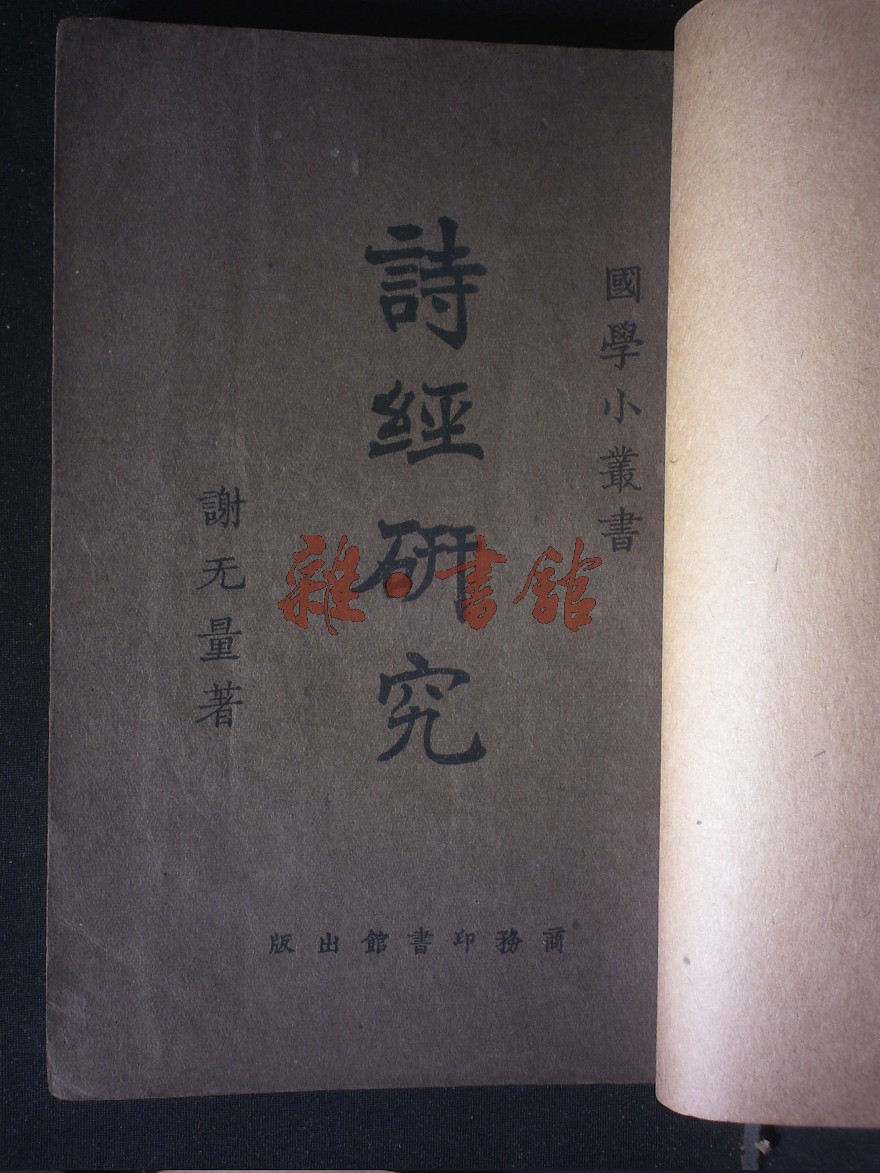 國學小叢書
詩經研究
謝无量著
商務印書館出版
雜·書館